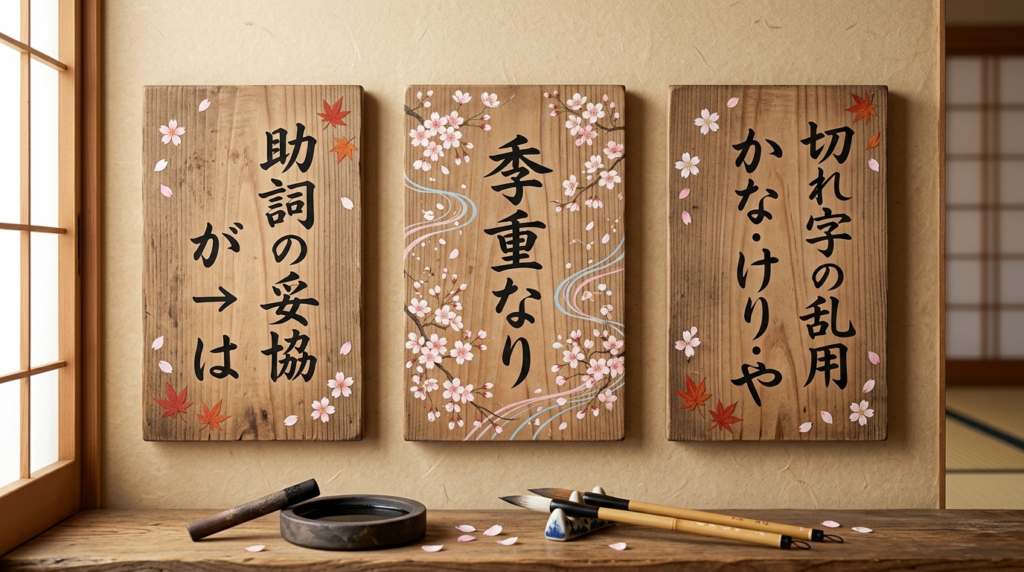 切れ字の乱用
かな・けり・や
季重なり
助詞の妥協
が→は